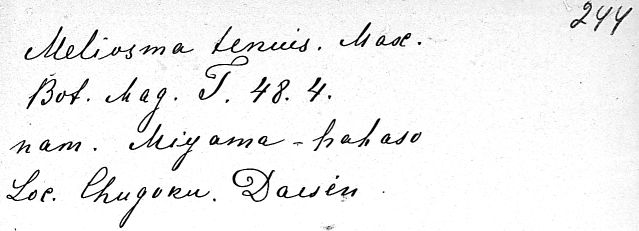 244
Meliosma tenuis. Max.
Bot. Mag. T. 48. 4.
nam. Miyama-hahaso
Loc. Chugoku. Daisen